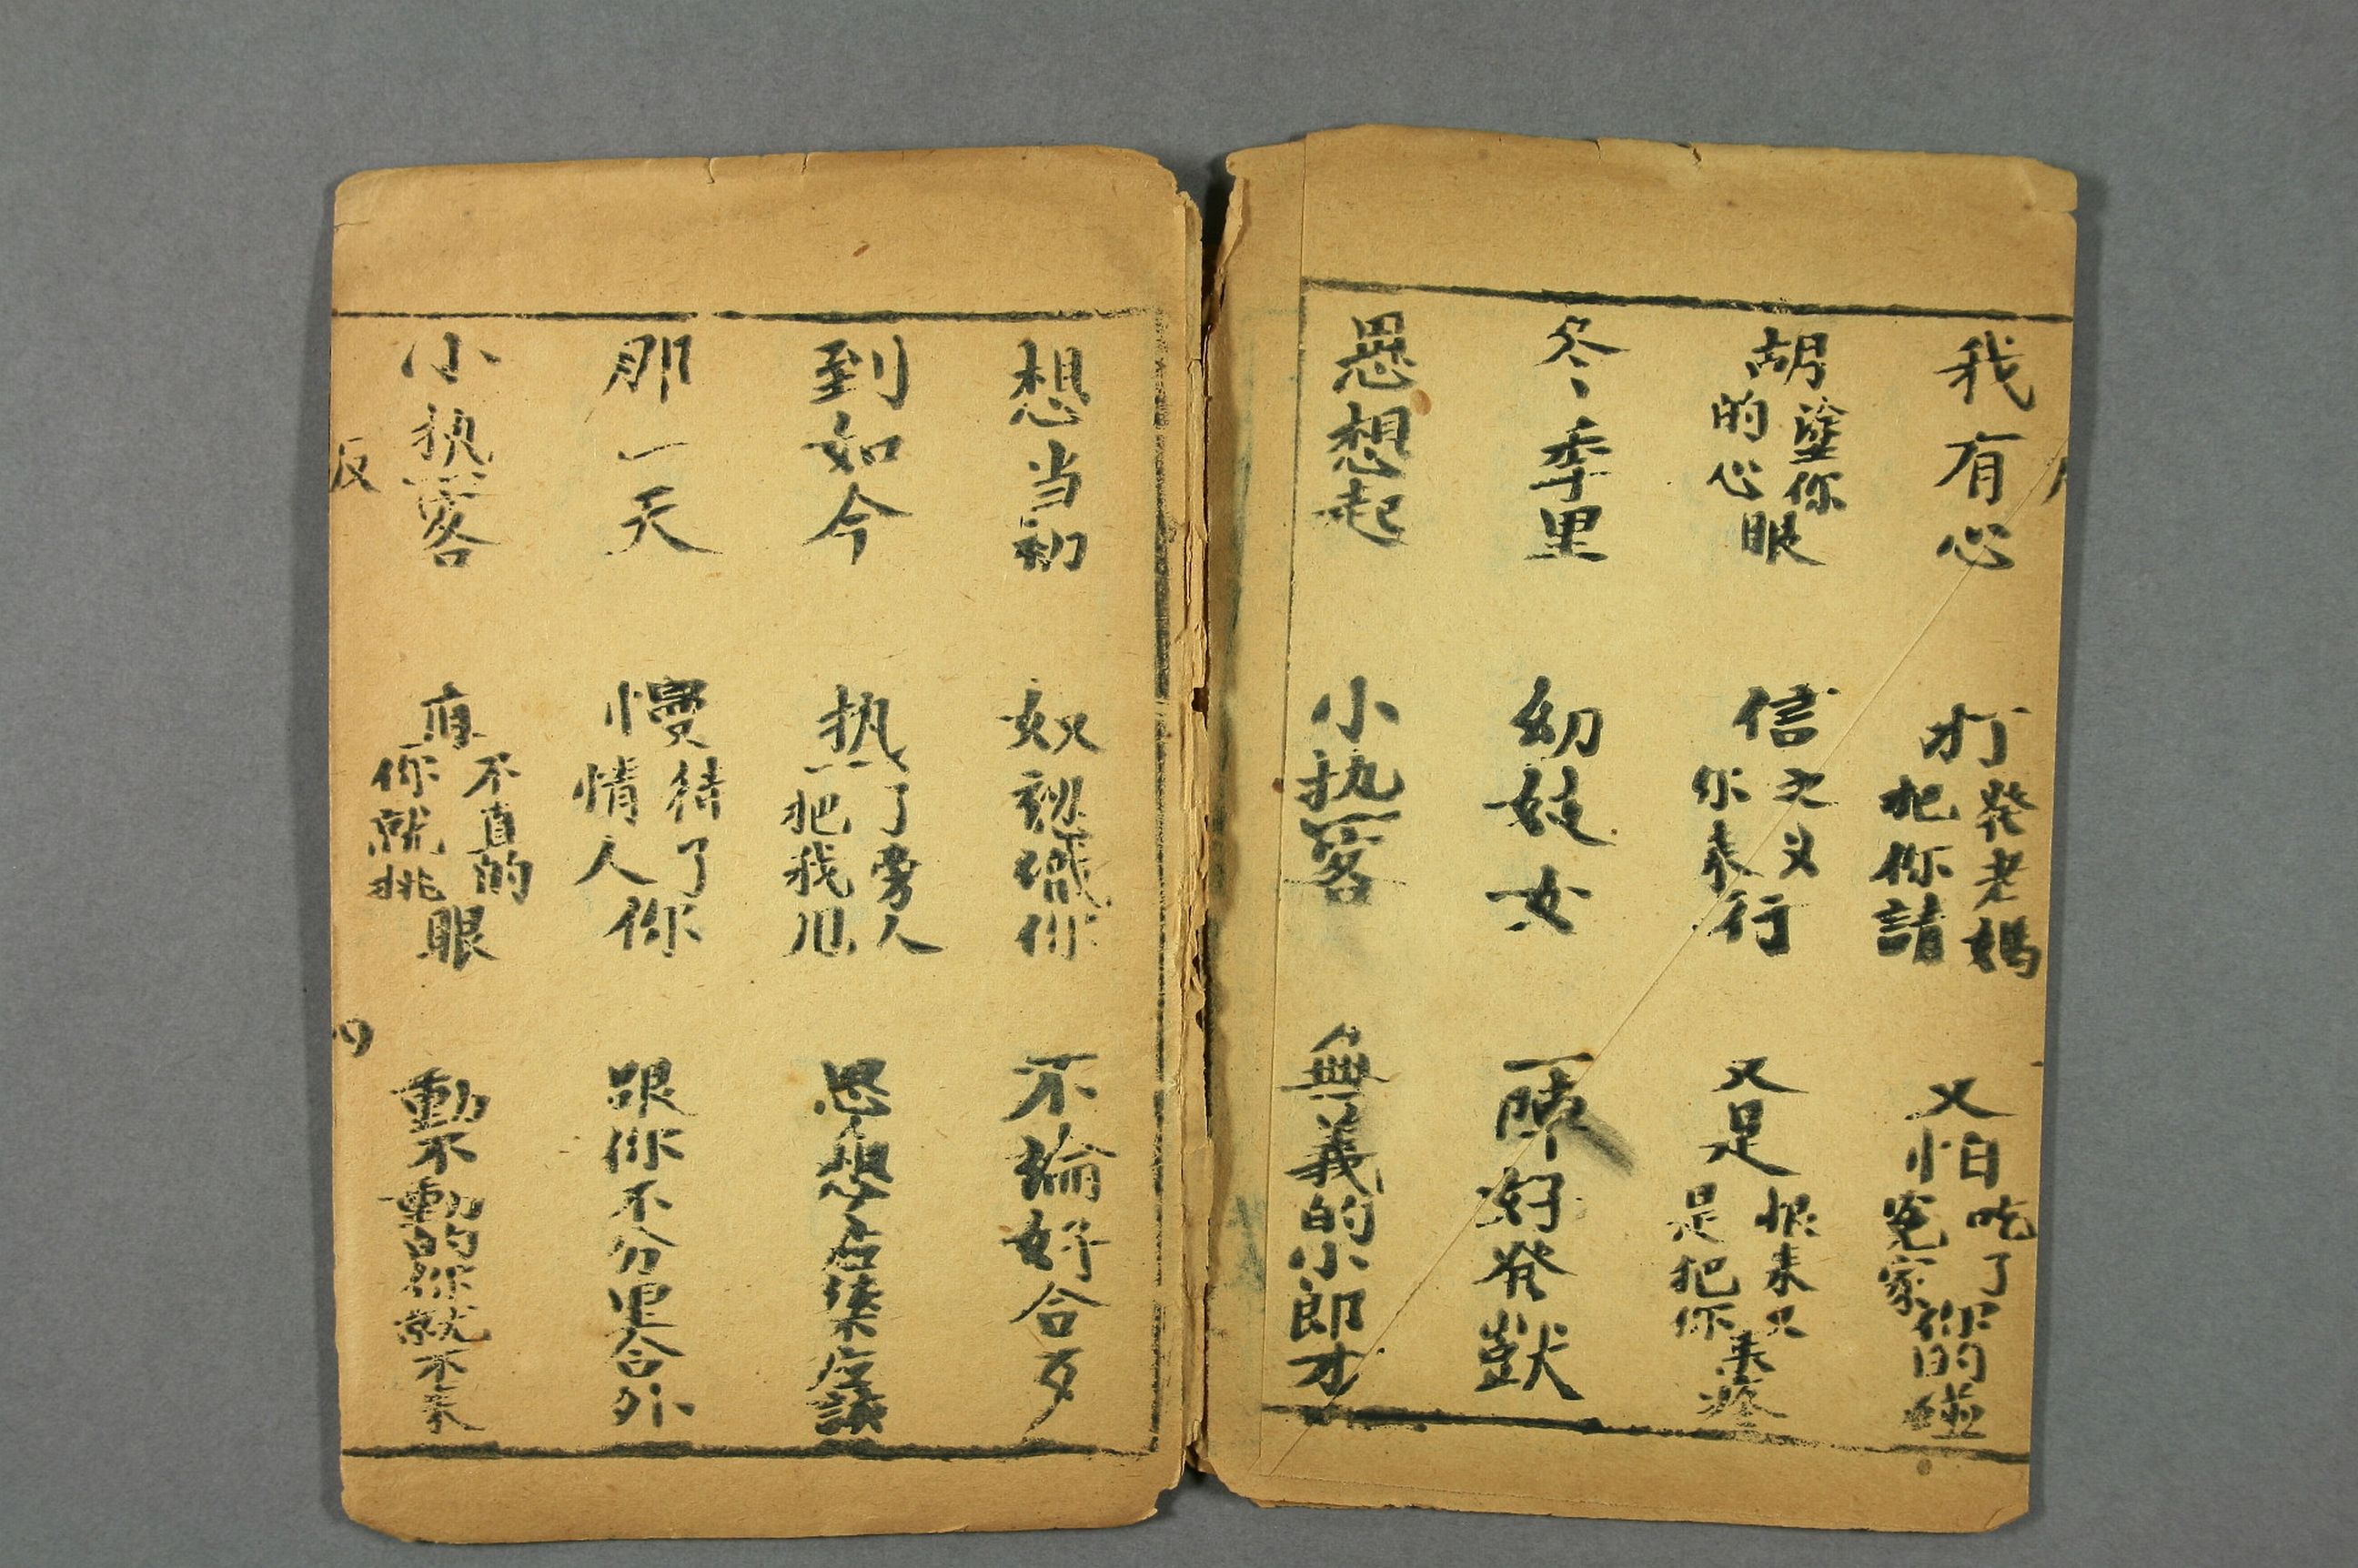 我有心 打發老媽把你請 又怕吃了冤家你的碰
胡塗你的心眼 信之义你来行 又是恨来又是把你来疼
冬、季里 幼妓女 一陣好發獃
思想起 小执客 無義的小郎才
想当初 奴認識你 不論好合歹
到如今 热了旁人把我忘 思想后集应該
那一天 慢待了情人你 跟你不分里合外
小执客 真不真的你就挑眼 動不動的你就不来
反 四